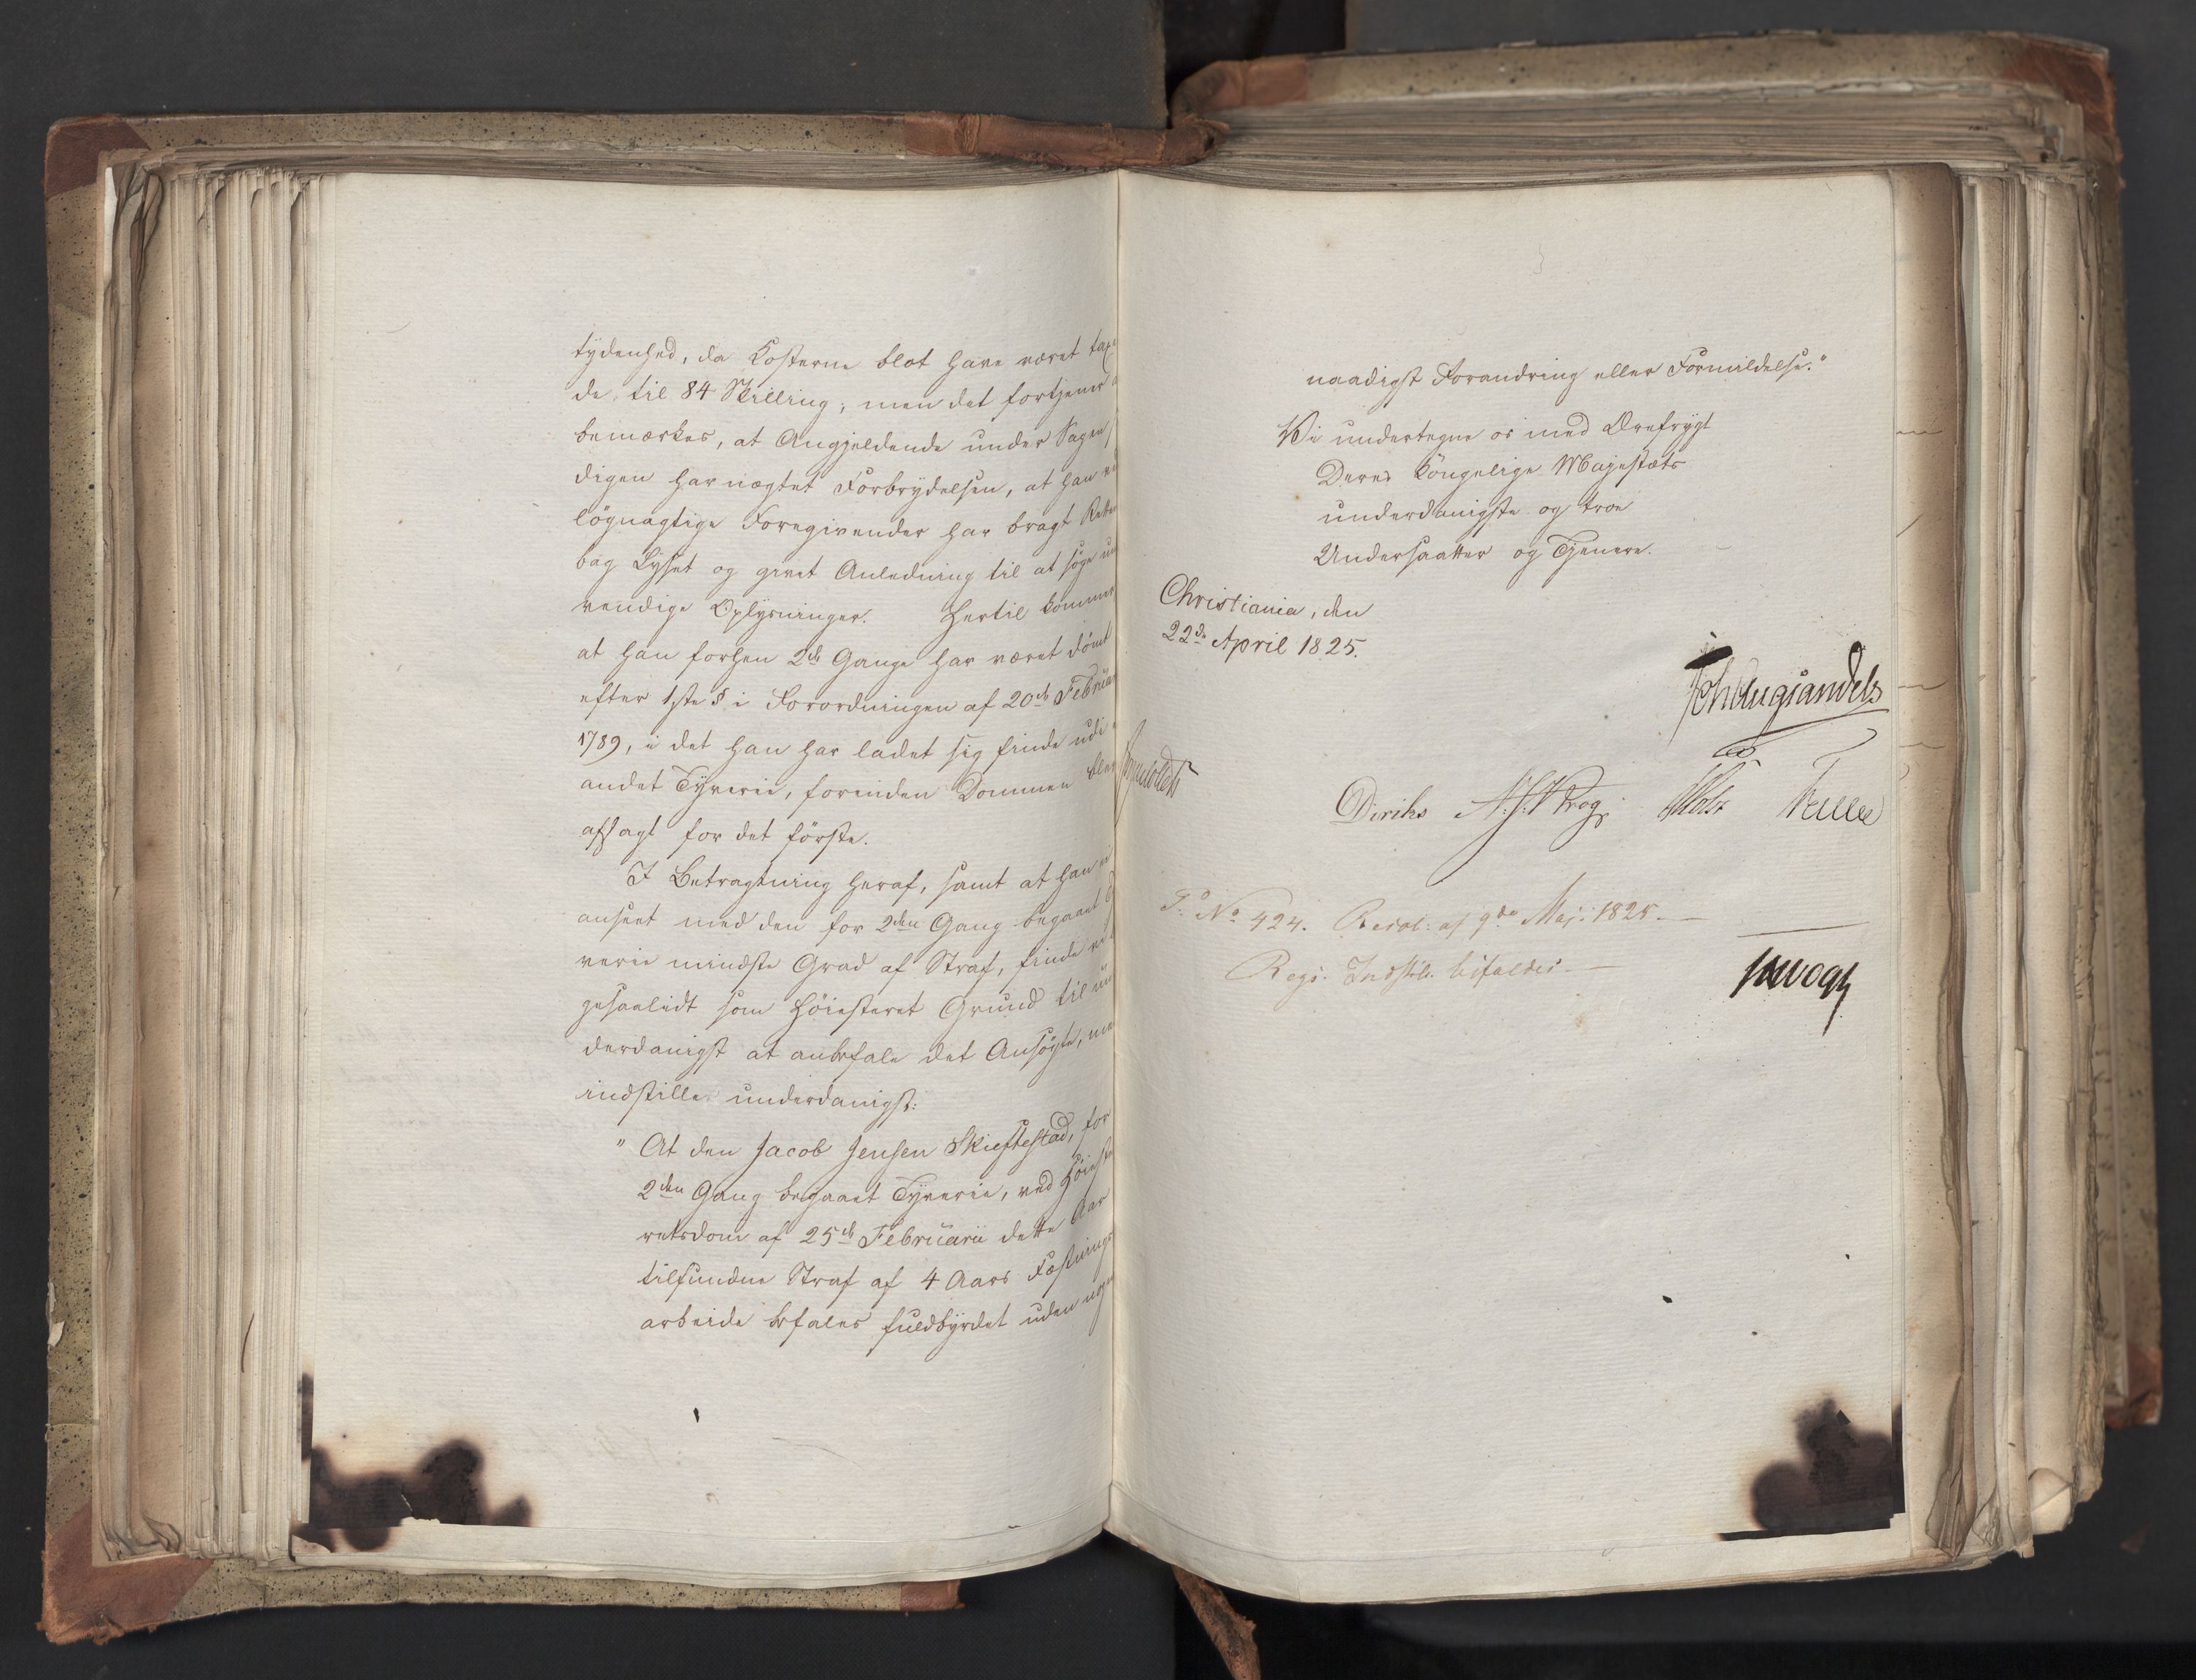 tydenhed, da Kosterne blot have været taxe
de til 84 Skilling; men det fortjener
bemærkes, at Angjeldende under Sagen
digen har nægtet Forbrydelsen, at han
løgnagtige Foregivender har bragt Retten
bag Lyset og givet Anledning til at søge
vendige Oplysninger. Hertil kommer
at han forhen 2de Gange har været dömt
efter 1ste § i Forordningen af 20de Februar
1789, i det han har ladet sig finde udi
andet Tyverie, forinden Dommen blev
afsagt for det förste.
I Betragtning heraf, samt at han
anseet med den for 2den Gang begaaet
verie mindste Grad af Straf, finde
gesaalidt som Höiesteret Grund til un
derdanigst at anbefale det Ansögte, men
indstille underdanigst:
" At den Jacob Jensen Skieftestad, for
2den Gang begaaet Tyverie, ved Höieste
retsdom af 25de Februarii dette Aar
tilfundne Straf af 4 Aars Fæstnings
arbeide befales fuldbyrdet uden nogen
naadigst Forandring eller Formildelse."
Vi undertegne os med Ærefrygt
Deres Kongelige Majestæts
underdanigste og troe
Undersaatter og Tjenere.
Christiania, den
22de April 1825.
Diriks Krog Holst Fasting
P. No 424. Resol: af 9de Maji 1825.
Regj. Indstill. bifaldes.